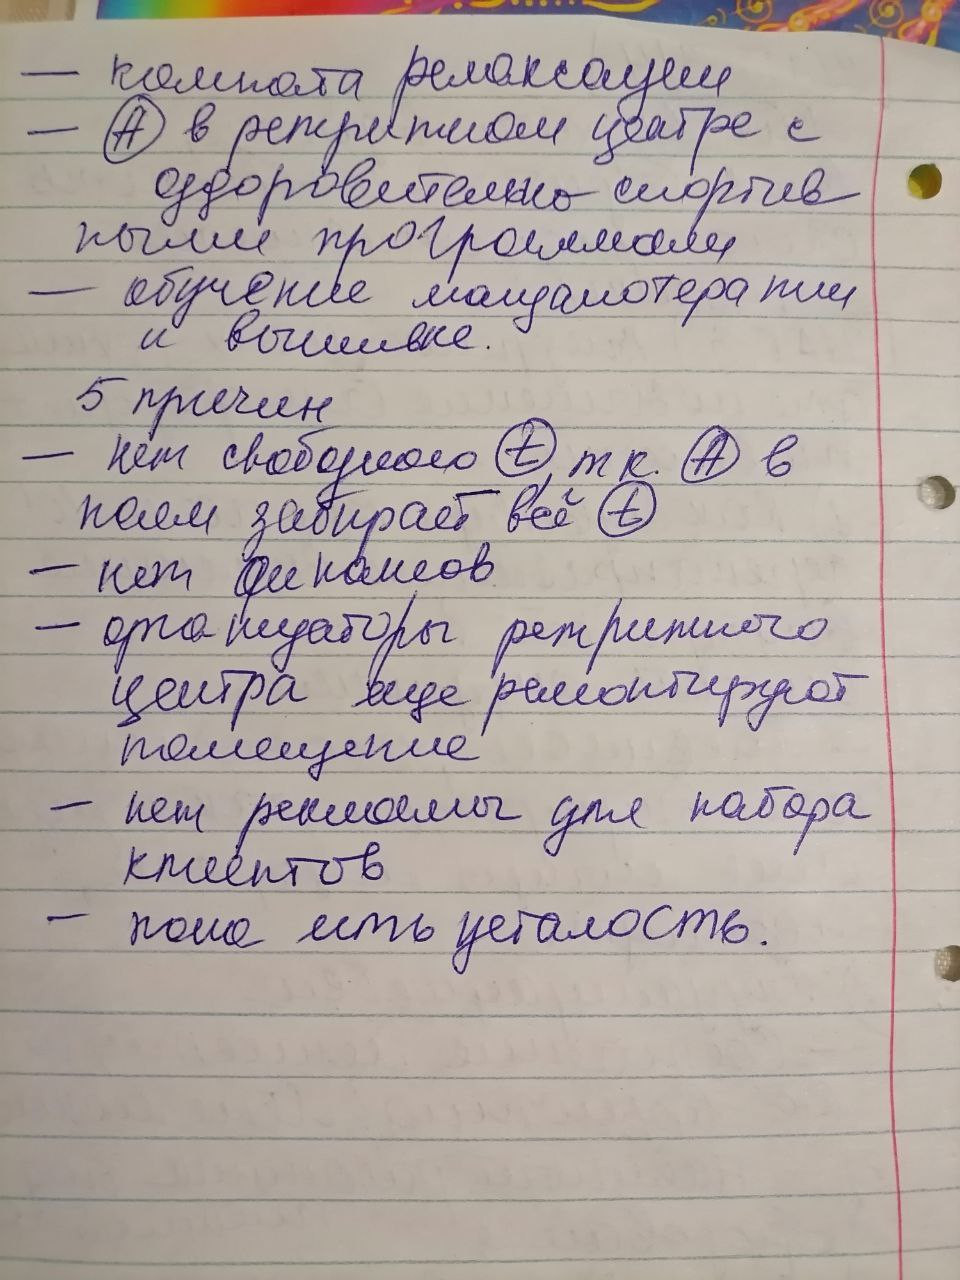 — комната релаксации
— Ⓐ в ретритном центре с
оздоровительно спортив
ными программами
— обучение мандалотерапии
и вышивке.
5 причин
— нет свободного ⓣ, т к. Ⓐ в
наем забирает всё ⓣ
— нет финансов
— организаторы ретритного
центра еще ремонтируют
помещение
— нет рекламы для набора
клиентов
— пока есть усталость.